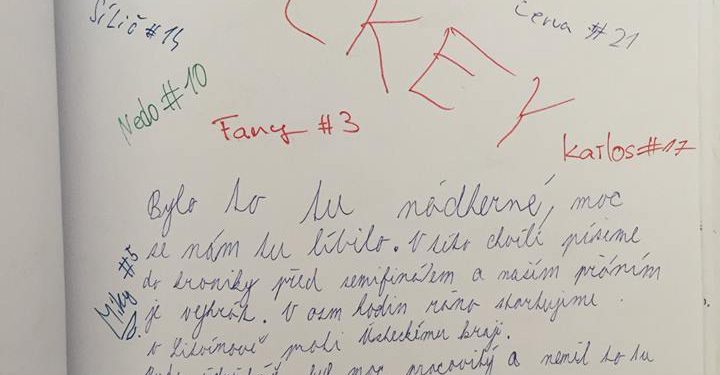 Šílič #15
Červa #21
CKEY
Nedo #10
Fany #3
Karlos #17
Miky #5
Bylo to tu nádherné, moc
se nám tu líbilo. V této chvíli píšeme
do kroniky před semifinálem a naším přáním
je vyhrát. V osm hodin ráno startujeme
v Litvínově proti Ústeckému kraji.
byl moc pracovitý a neměl to tu